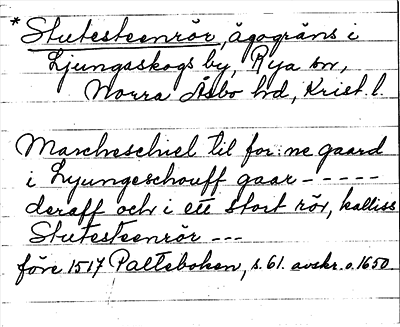 *Stutesteenrör, ägogräns i
Ljungaskogs by, Rya sn,
Norra Åsbo hd, Krist. l.
Marcheschiel til for:ne gaard
i Lyungeschouff gaar - - - - -
deraff och i ett stort rör, kalliss
Stutesteenrör - - -
före 1517 Palteboken, s. 61. avskr. o. 1650.